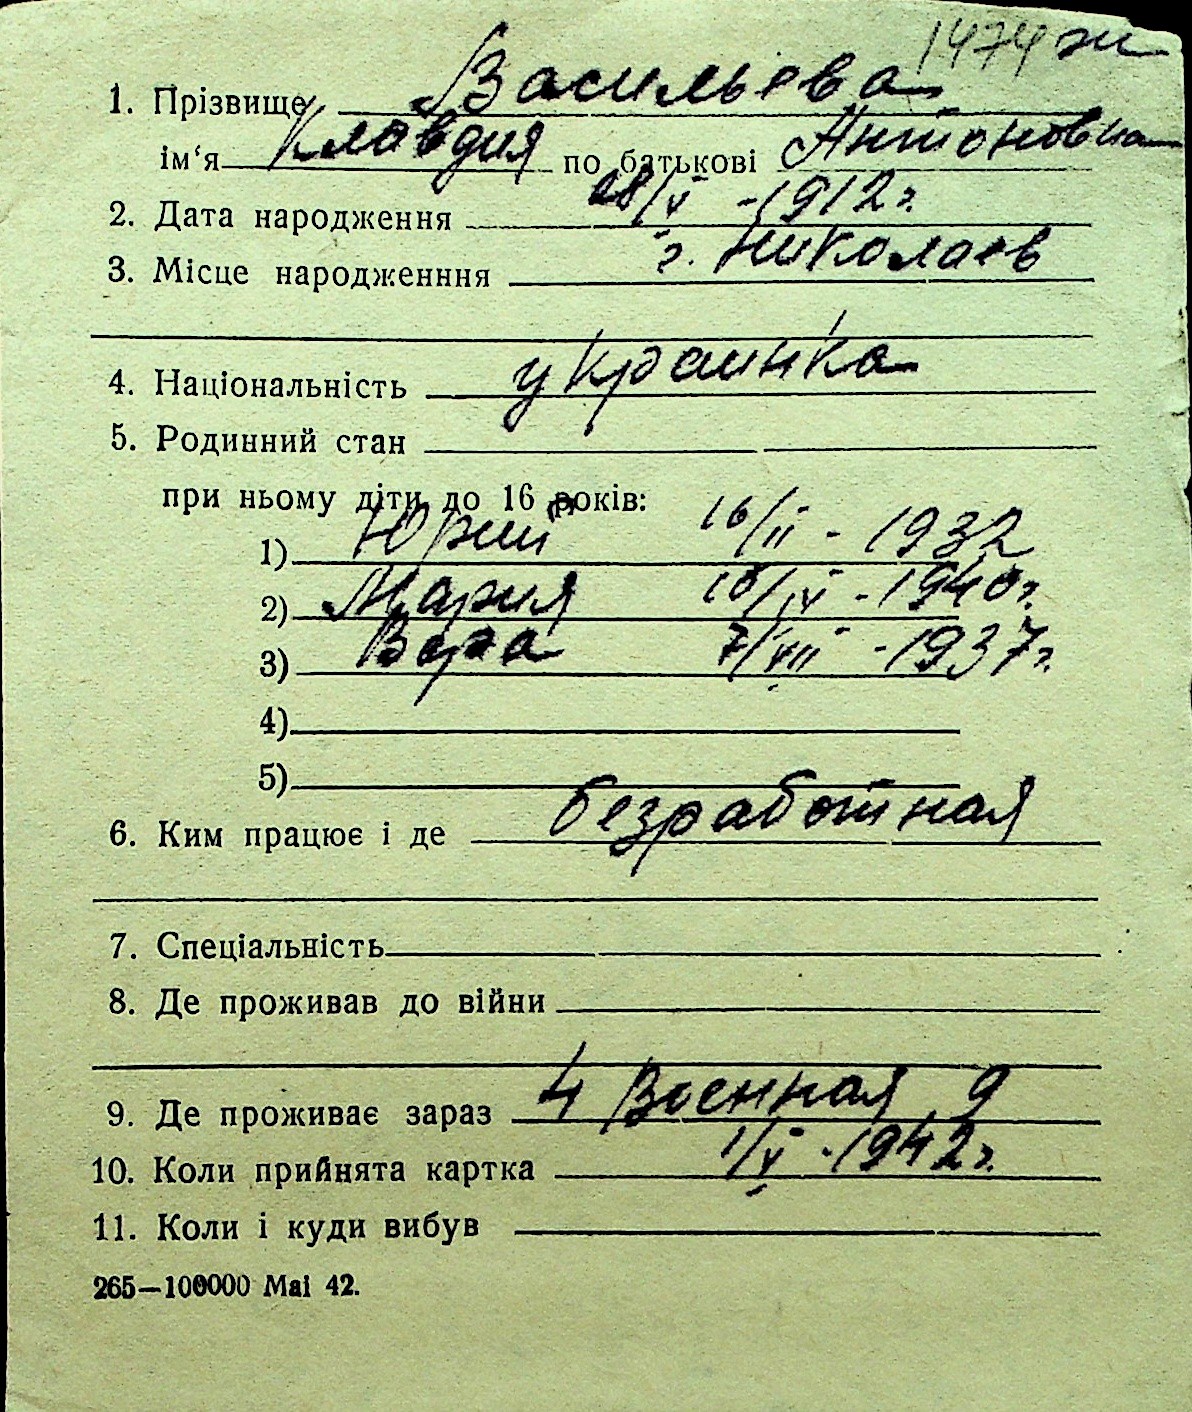 1474 ж
1. Прізвище Васильева
ім‘я Клавдия по батькові Антоновна
2. Дата народження 28/V - 1912 г.
3. Місце народженння г. Николаев
4. Національність украинка
5. Родинний стан
при ньому діти до 16 років:
1) Юрий 16/II - 1932
2) Мария 18/IV - 1940 г.
3) Вера 7/VII - 1937 г.
4)
5)
6. Ким працює і де безработная
7. Спеціальність
8. Де проживав до війни
9. Де проживає зараз 4 Военная, 9
10. Коли прийнята картка 1/V - 1942 г.
11. Коли і куди вибув
265—100000 Mai 42.